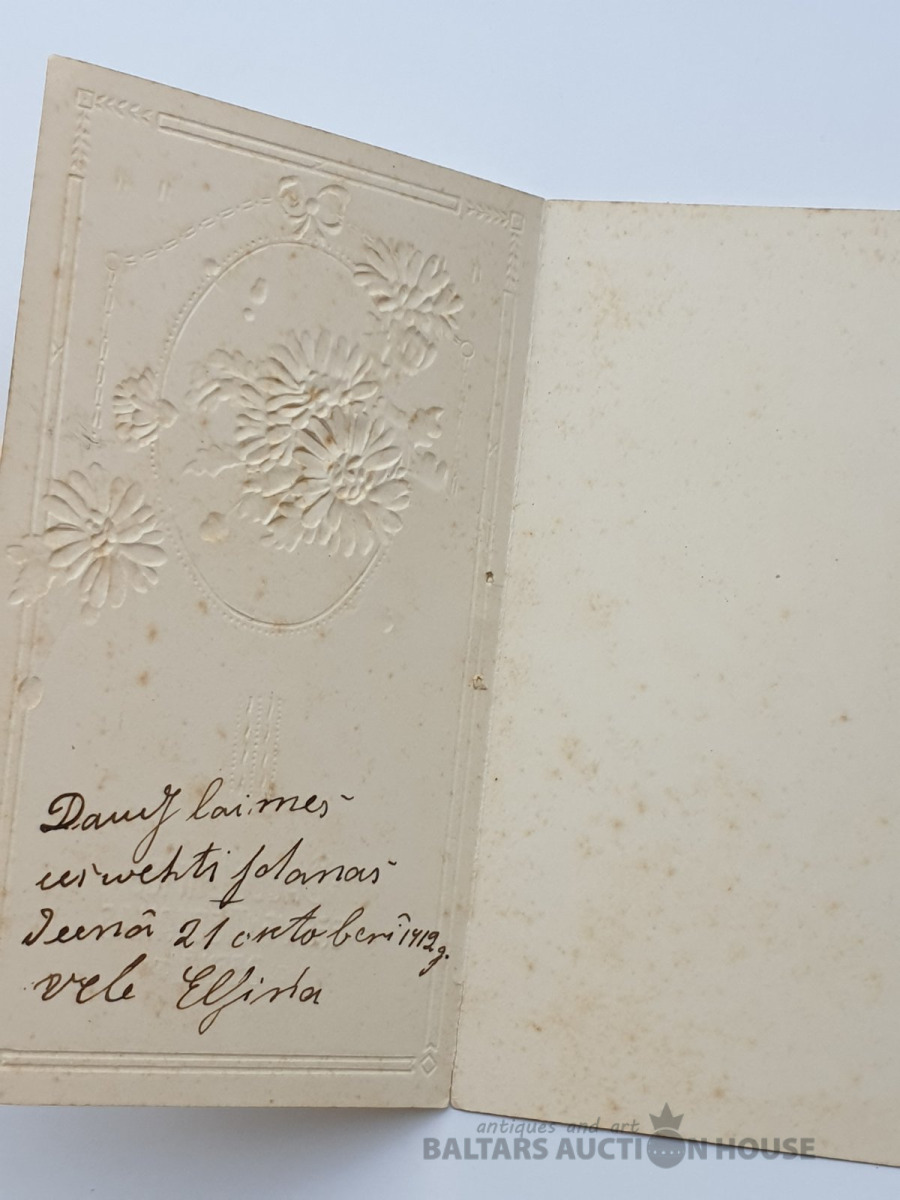 Daudſ laimes
eeswehti
deenâ 21 oktoberî 1912g.
vele Elſiņa
antiques and art
BALTARS AUCTION HOUSE